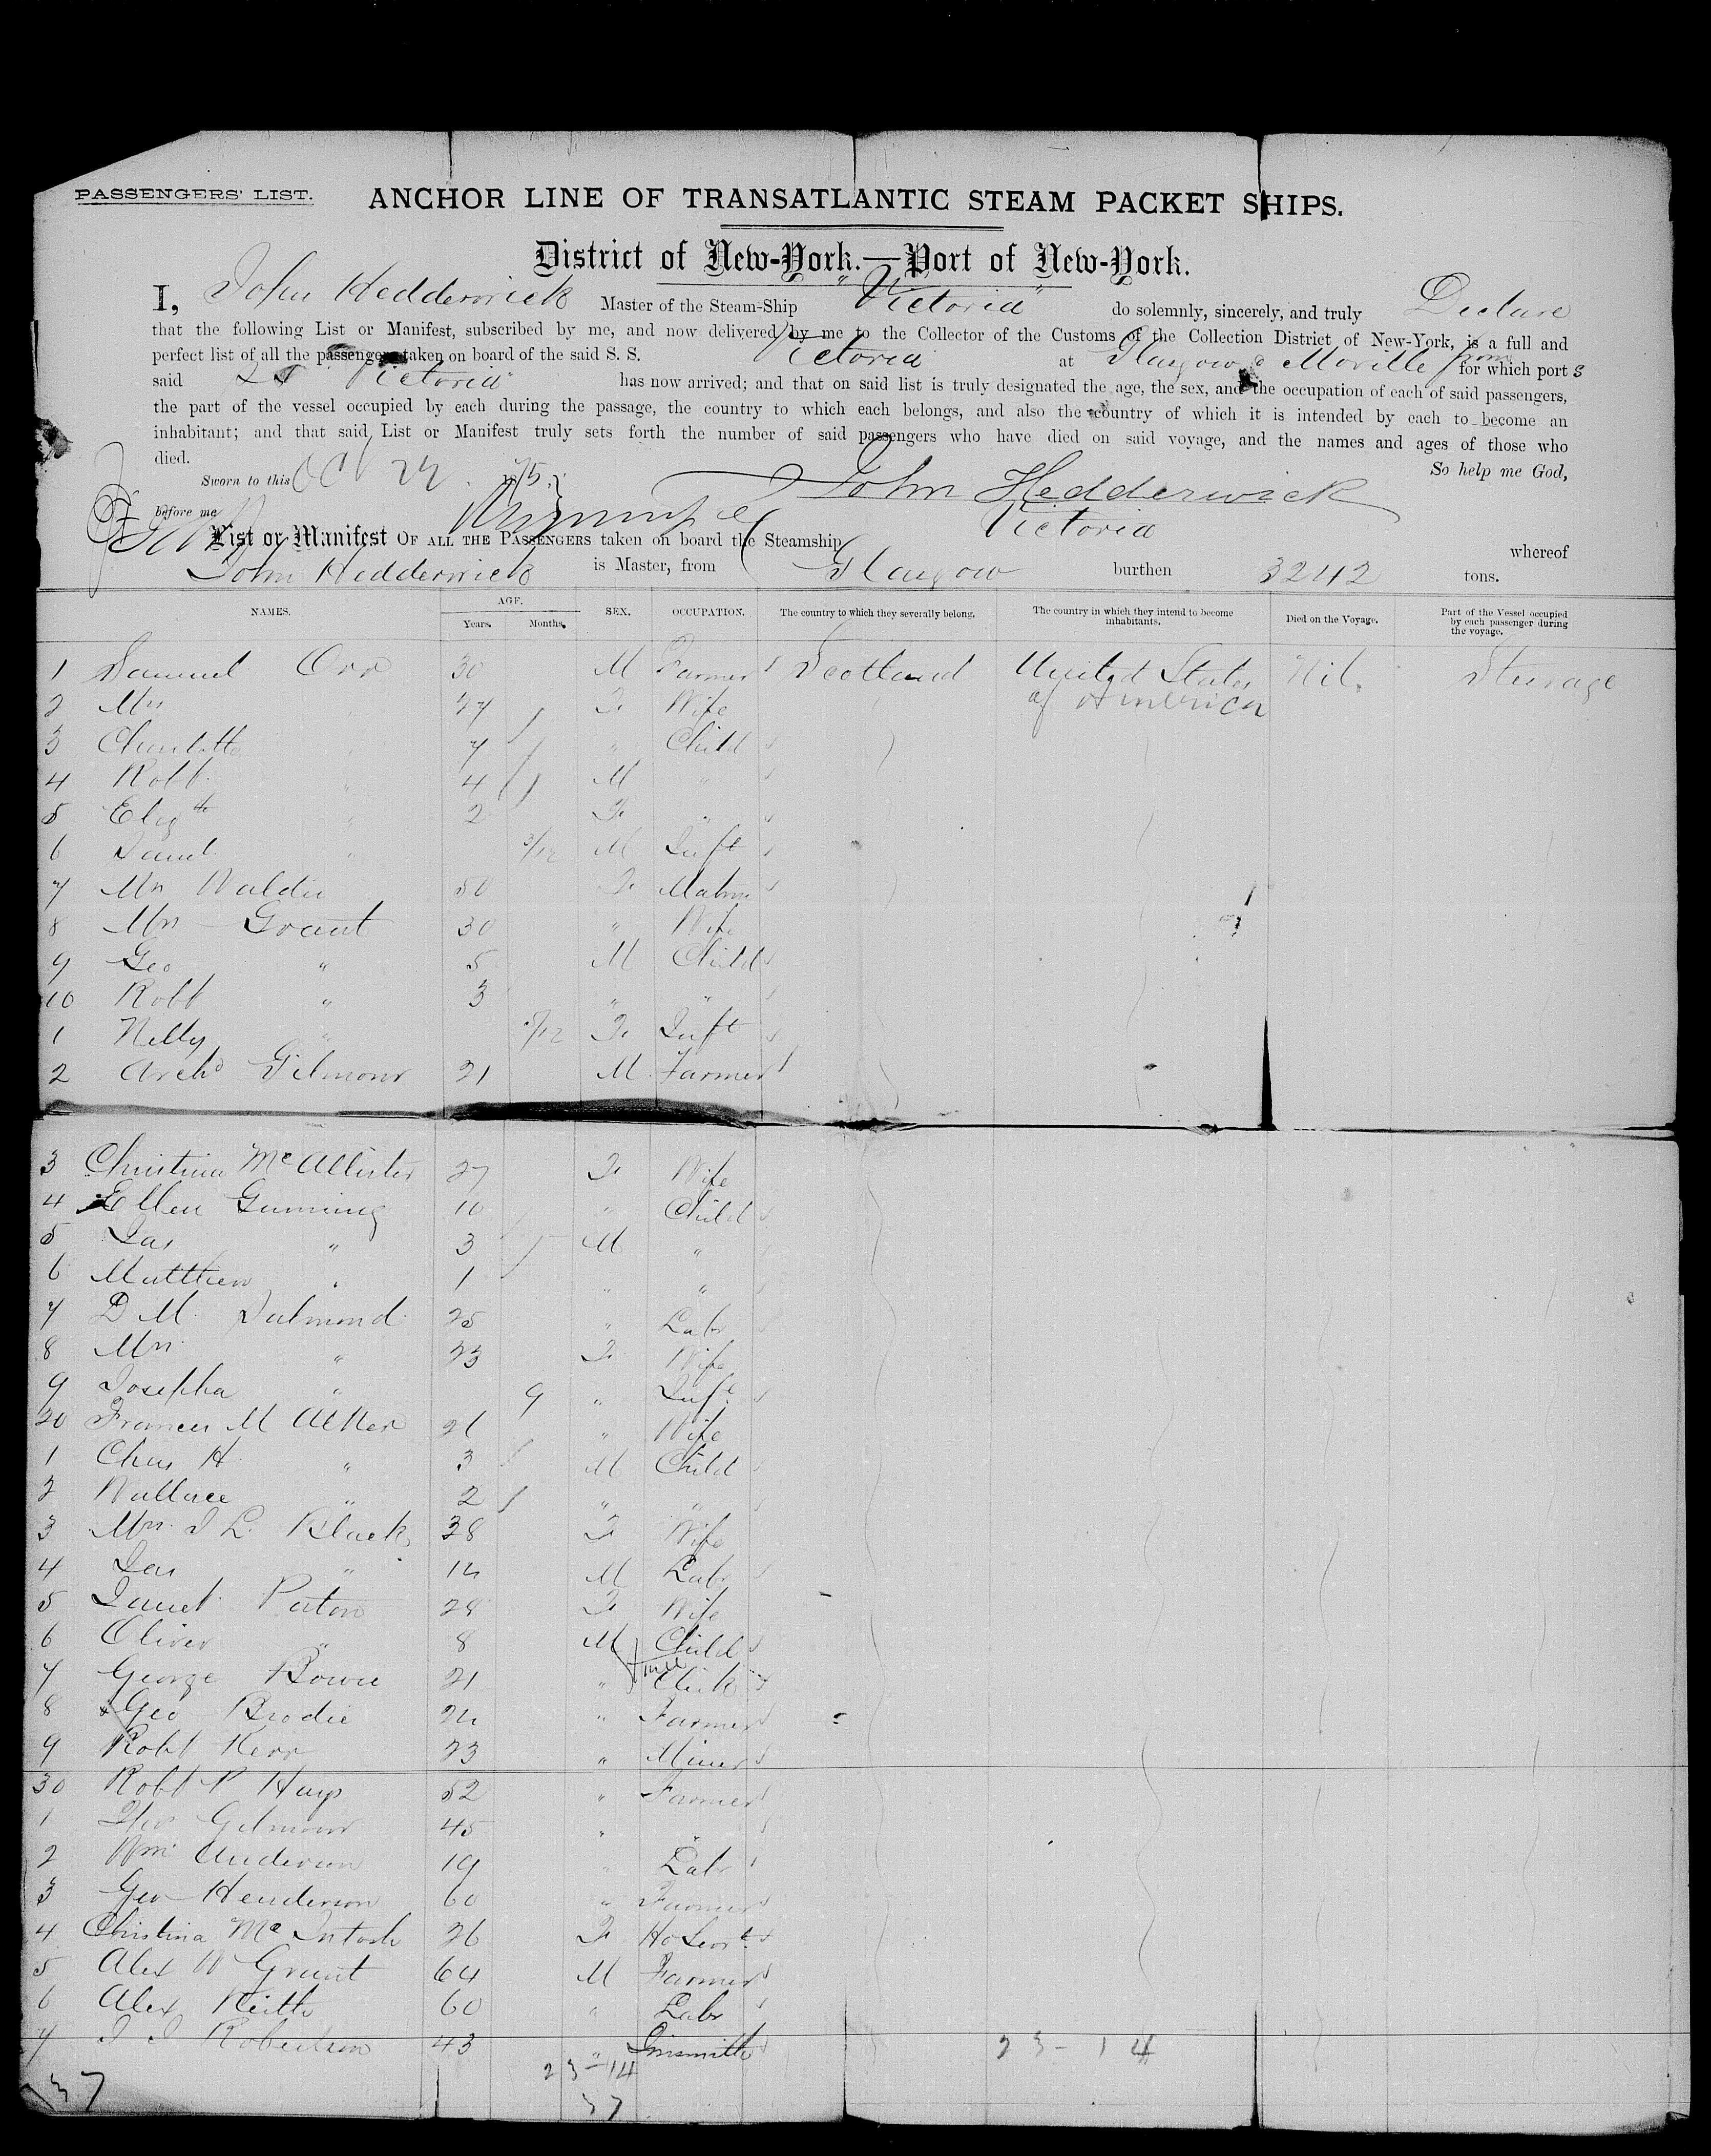 PASSENGERS' LIST. ANCHOR LINE OF TRANSATLANTIC STEAM PACKET SHIPS.
District of New-York.—Port of New-York.
I, John Hedderwick Master of the Steam-Ship "Victoria" do solemnly, sincerely, and truly Declare
that the following List or Manifest, subscribed by me, and now delivered by me to the Collector of the Customs of the Collection District of New-York, is a full and
perfect list of all the passengers taken on board of the said S. S. Victoria at Glasgow & Moville from for which port s
said Victoria has now arrived; and that on said list is truly designated the age, the sex, and the occupation of each of said passengers,
the part of the vessel occupied by each during the passage, the country to which each belongs, and also the country of which it is intended by each to become an
inhabitant; and that said List or Manifest truly sets forth the number of said passengers who have died on said voyage, and the names and ages of those who
died. So help me God,
Sworn to this Oct 22 1875. John Hedderwick
before me
List or Manifest OF ALL THE PASSENGERS taken on board the Steamship Victoria whereof
John Hedderwick is Master, from Glasgow burthen 3242 tons.
NAMES. AGE. Years. Months. SEX. OCCUPATION. The country to which they severally belong. The country in which they intend to become inhabitants. Died on the Voyage. Part of the Vessel occupied by each passenger during the voyage.
1 Samuel Orr 30 M Farmer Scotland United States of America Nil. Steerage
2 Mrs 27 F. Wife
3 Charlotte 7 " Child
4 Robt. " 4 M "
5 Elizth " 2 F. "
6 Saml. " 3/12 M Inft
7 Mrs Waldie 50 F. Matron
8 Mrs Grant 30 " Wife
9 Geo " 5 M Child
10 Robt " 3 " "
1 Nelly " 5/12 F. Inft
2 Archd Gilmour 21 M. Farmer
3 Christina McAllister 27 F. Wife
4 Ellen Gunning 10 " Child
5 Jas " 3 M "
6 Matthew " 1 " "
7 D. M. Salmond 25 " Labr
8 Mrs " 23 F. Wife
9 Josepha " 9 " Inft
20 Frances M 26 " Wife
1 Chas H. " 3 M Child
2 Wallace " 2 " "
3 Mrs. J L. Black 38 F. Wife
4 Jas " 14 M Labr
5 Janet Paton 28 F. Wife
6 Oliver " 8 M Child
7 George Bowie 21 " Clerk
8 Geo Brodie 24 " Farmer
9 Robt Kerr 23 " Miner
30 Robt P Hays 52 " Farmer
1 Gilmour 45 " "
2 Wm Anderson 19 " Labr
3 Geo Henderson 60 " Farmer
4 Christina McIntosh 26 F. Ho Servt.
5 Alex W Grant 64 M Farmer
6 Alex Keith 60 " Labr
7 J J Robertson 43 " Tinsmith 23-14
23-14
37 37